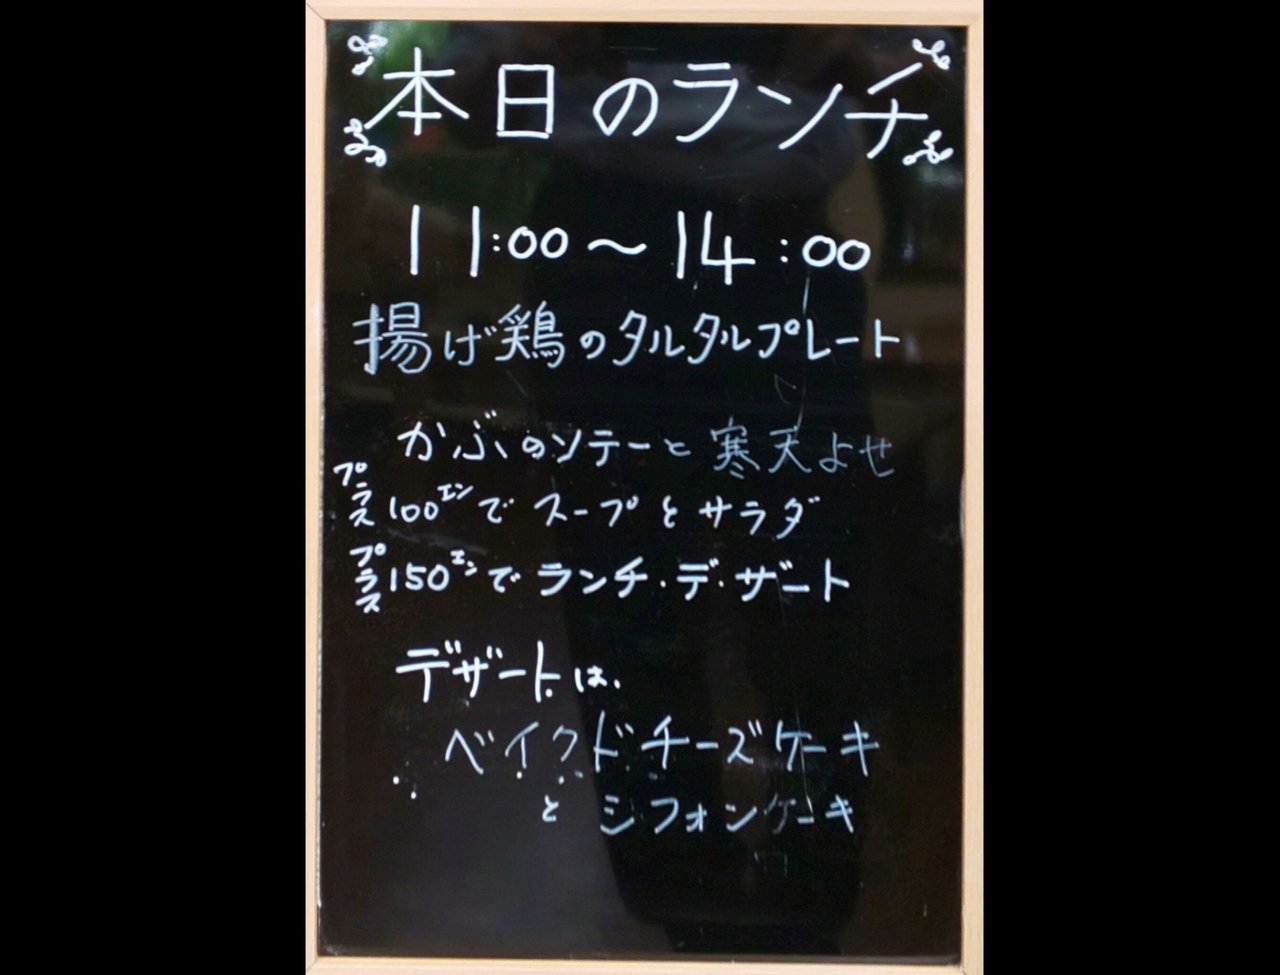 本日のランチ
11:00～14:00
揚げ鶏のタルタルプレート
かぶのソテーと寒天よせ
プラス100エンでスープとサラダ
プラス150エンでランチ・デ・ザート
デザートは、
ベイクドチーズケーキ
とシフォンケーキ